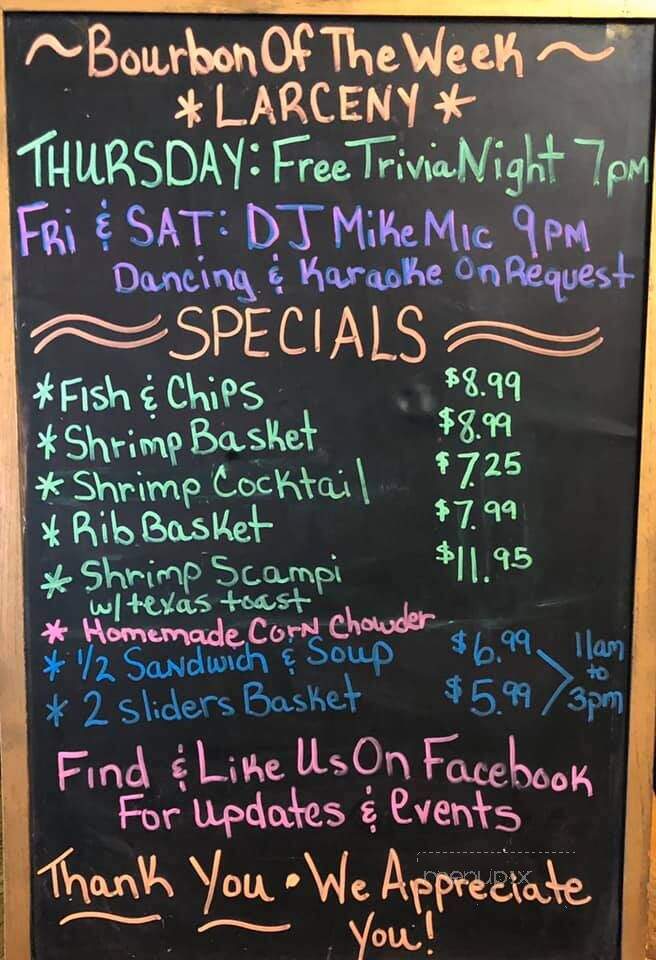 ~Bourbon Of The Week~
*LARCENY*
THURSDAY: Free Trivia Night 7pm
Fri & SAT: DJ Mike Mic 9PM
Dancing & Karaoke On Request
SPECIALS
*Fish & Chips $8.99
*Shrimp Basket $8.99
* Shrimp Cocktail $7.25
* Rib Basket $7.99
* Shrimp Scampi $11.95
w/texas toast
* Homemade Corn Chowder
* 1/2 Sandwich & Soup $6.99 11am
to
* 2 Sliders Basket $5.99 3pm
Find & Like Us On Facebook
For updates & events
Thank You • We Appreciate
You!
menupix